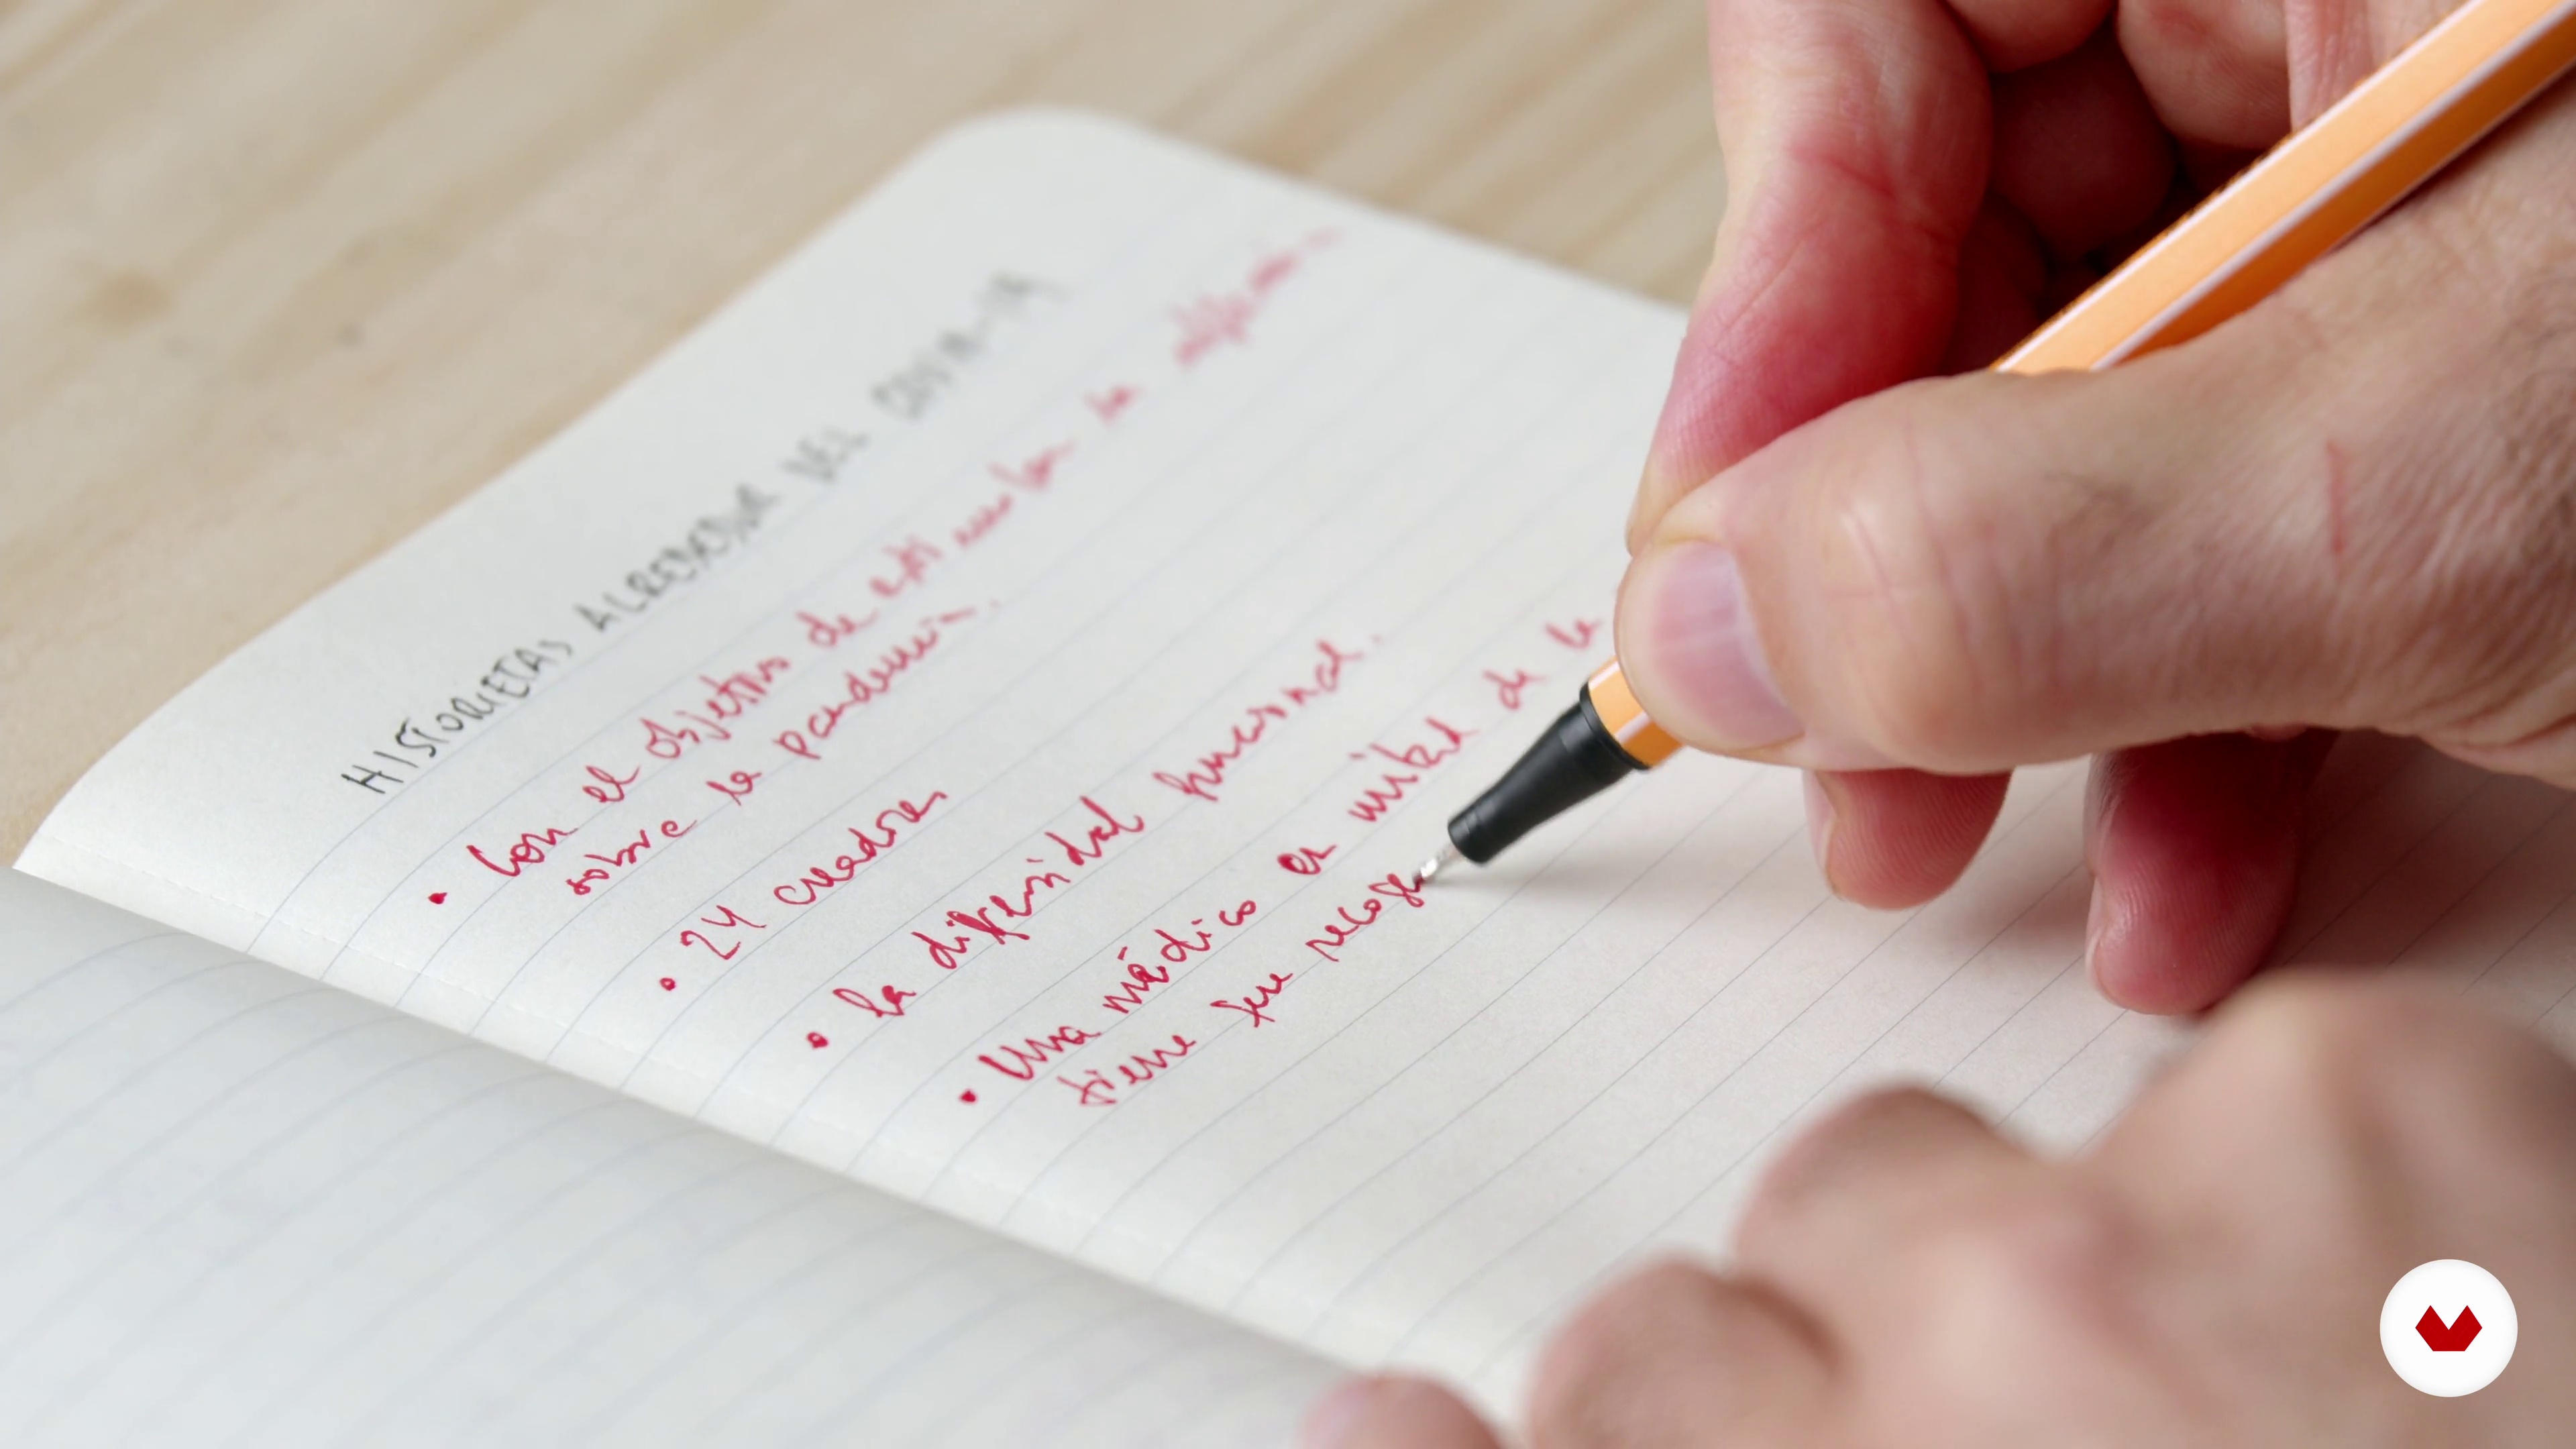 HISTORIETAS ALREDEDOR DEL COVID-19
• Con el objetivo de estimular la reflexión
sobre la pandemia.
• 24 creadores
• La diversidad funcional.
• Una médico en mitad de la
tiene que recoge